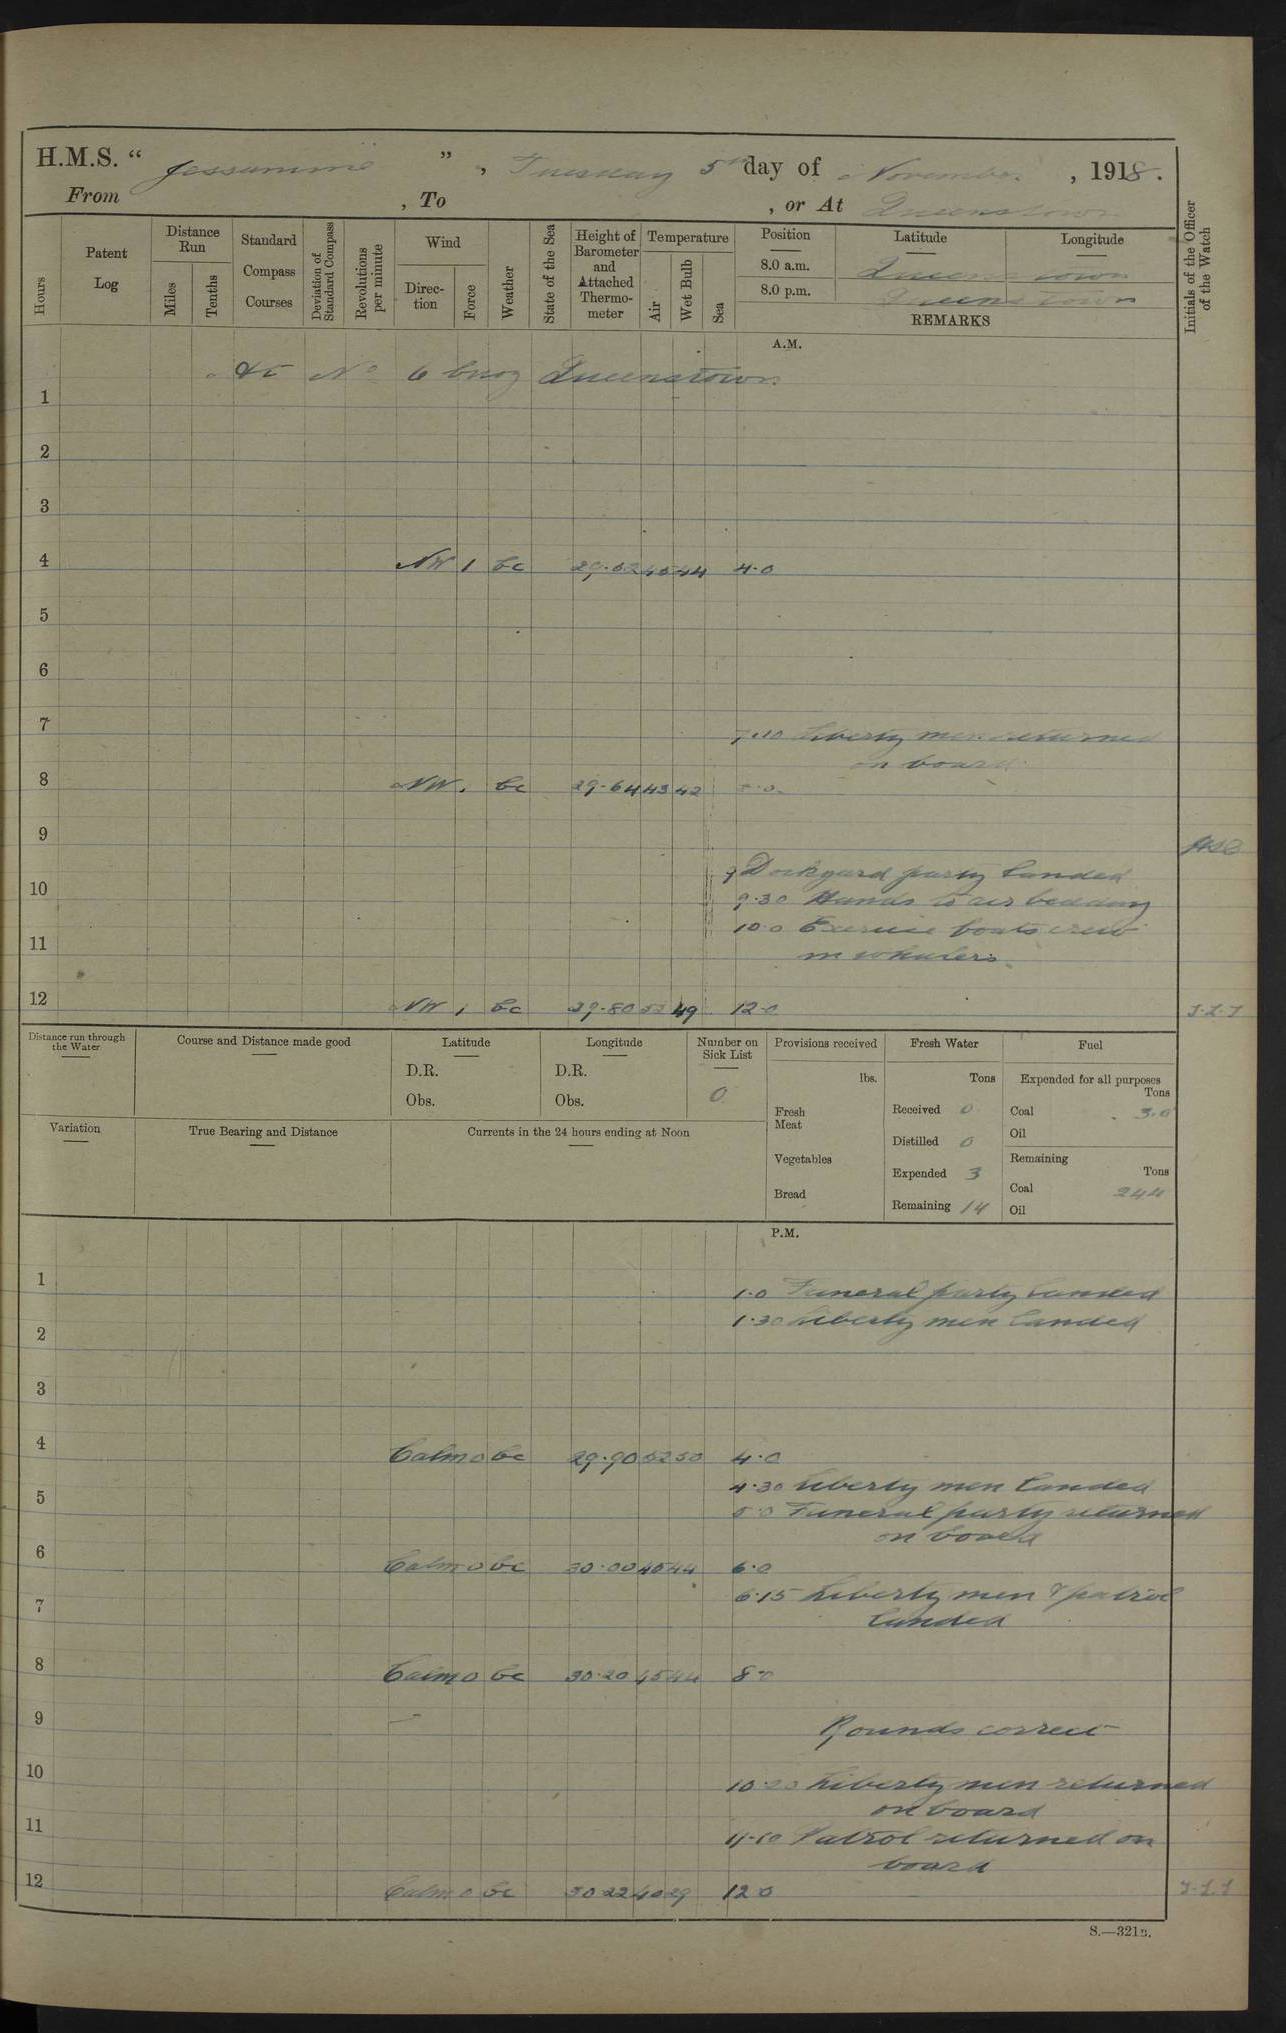 H.M.S. “ Jessamine ”, Tuesday 5th day of November, 1918.
From , To , or At Queenstown
Hours
Patent Log
Distance Run
Miles
Tenths
Standard Compass Courses
Deviation of Standard Compass
Revolutions per minute
Wind
Direction
Force
Weather
State of the Sea
Height of Barometer and Attached Thermometer
Temperature
Air
Wet Bulb
Sea
Position
Latitude
Longitude
8.0 a.m. Queenstown
8.0 p.m. Queenstown
REMARKS
Initials of the Officer of the Watch
A.M.
At No 6 buoy Queenstown
1
2
3
4 NW 1 bc 29.52 45 44 4.0
5
6
7
7.10 Liberty men returned
on board
8 NW 1 bc 29.64 43 42 8.0
9
9 Dockyard party landed
10
9.30 Hands to air bedding
10.0 Exercise boats crew
11
in whalers
12 NW 1 bc 29.80 52 49 12.0 J.L.J
Distance run through the Water
Course and Distance made good
Latitude
D.R.
Obs.
Longitude
D.R.
Obs.
Number on Sick List
0
Provisions received
lbs.
Fresh Meat
Vegetables
Bread
Fresh Water
Tons
Received 0
Distilled 0
Expended 3
Remaining 14
Fuel
Expended for all purposes
Tons
Coal 3.0
Oil
Remaining
Tons
Coal 244
Oil
Variation
True Bearing and Distance
Currents in the 24 hours ending at Noon
P.M.
1
1.0 Funeral party landed
1.30 Liberty men landed
2
3
4 Calm 0 bc 29.90 52 50 4.0
4.30 Liberty men landed
5
5.0 Funeral party returned
on board
6 Calm 0 bc 30.00 45 44 6.0
6.15 Liberty men & patrol
7
landed
8 Calm 0 bc 30.20 45 44 8.0
9
Rounds correct
10
10.20 Liberty men returned
on board
11
11.10 Patrol returned on
board
12 Calm 0 bc 30.22 40 39 12.0 J.L.J
S.—321B.